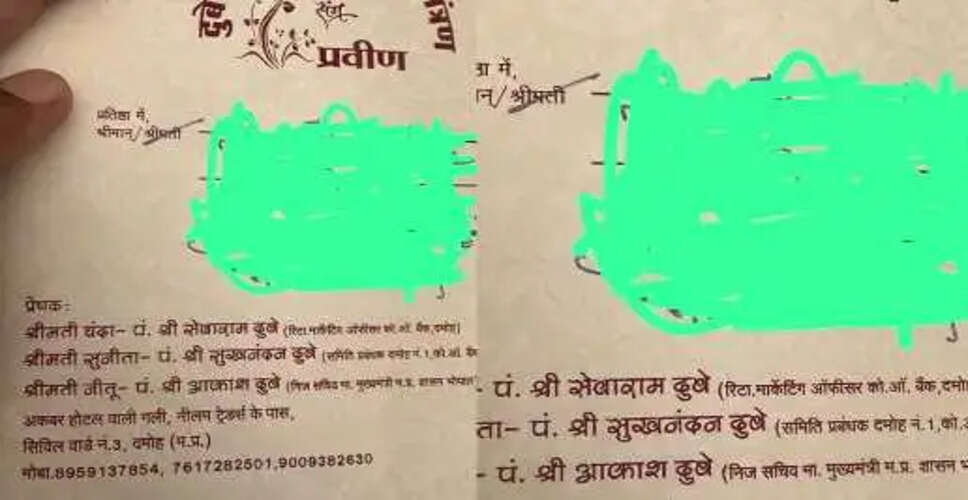 संग
प्रवीण
प्रतिष्ठा में,
श्रीमान्/श्रीमती
प्रेषक:
श्रीमती चंदा- पं. श्री सेवाराम दुबे (रिटा.मार्केटिंग ऑफीसर को.ऑ. बैंक,दमोह)
श्रीमती सुनीता- पं. श्री सुखनंदन दुबे (समिति प्रबंधक दमोह नं.1,को.ऑ. बैं
श्रीमती नीतू- पं. श्री आकाश दुबे (निज सचिव मा. मुख्यमंत्री म.प्र. शासन भोपाल)
अकबर होटल वाली गली, नीलम ट्रेडर्स के पास,
सिविल वार्ड नं.3, दमोह (म.प्र.)
मोबा.8959137854, 7617282501,9009382630
ठा में,
ान्/श्रीमती
- पं. श्री सेवाराम दुबे (रिटा.मार्केटिंग ऑफीसर को.ऑ. बैंक,दमो
ता- पं. श्री सुखनंदन दुबे (समिति प्रबंधक दमोह नं.1,को.
- पं. श्री आकाश दुबे (निज सचिव मा. मुख्यमंत्री म.प्र. शासन